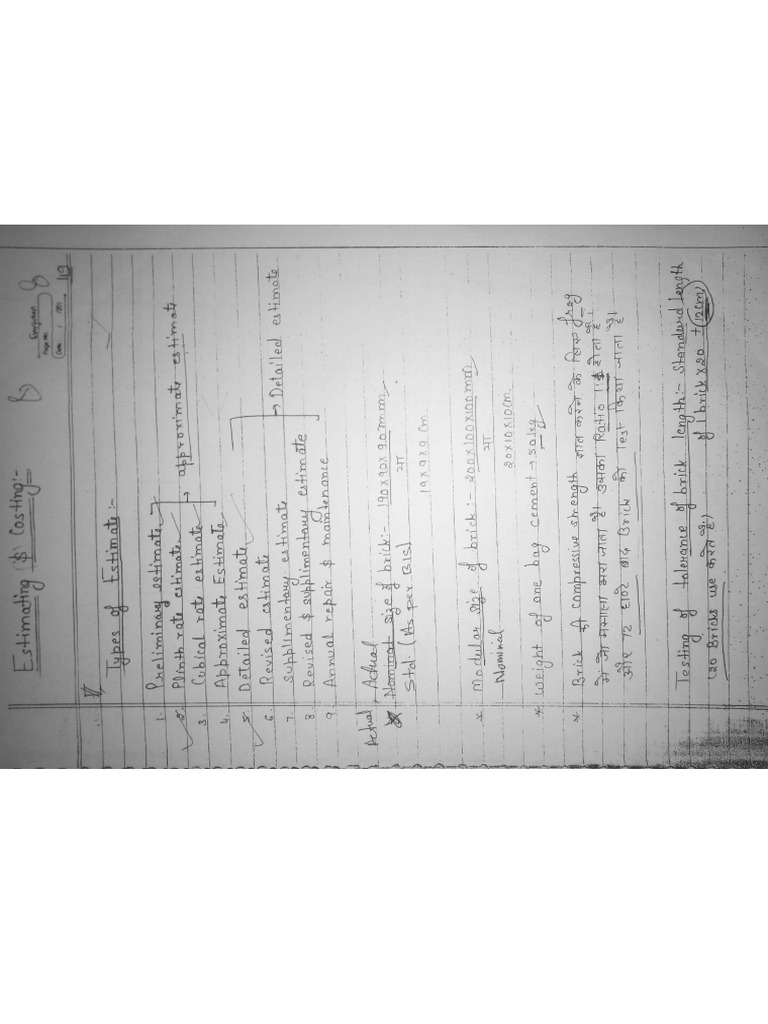 Estimating ($) Costing:-
Page No.
Date
19
Types of Estimate:-
1. Preliminary estimate
2. Plinth rate estimate
3. Cubical rate estimate
→ approximate estimate
4. Approximate Estimate
5. Detailed estimate
6. Revised estimate
7. Supplimentory estimate
8 Revised $ supplimentory estimate
9. Annual repair $ maintenance
→ Detailed estimate
Actual, Actual
Nominal size of brick:- 190x90x90mm
Std. (As per BIS) या
19x9x9 cm.
* Modular size of brick:- 200x100x100mm
Nominal या
20x10x10cm.
* Weight of one bag cement → 50kg
* Brick की compressive strength ज्ञात करने के लिए frog
में जो मसाला भरा जाता है। उसका Ratio 1:1 होता है
और 72 घण्टे बाद Brick को Test किया जाता है।
Testing of tolerance of brick length:- Standard length
(20 Bricks use करते है) of 1 brick x 20 ± 12cm